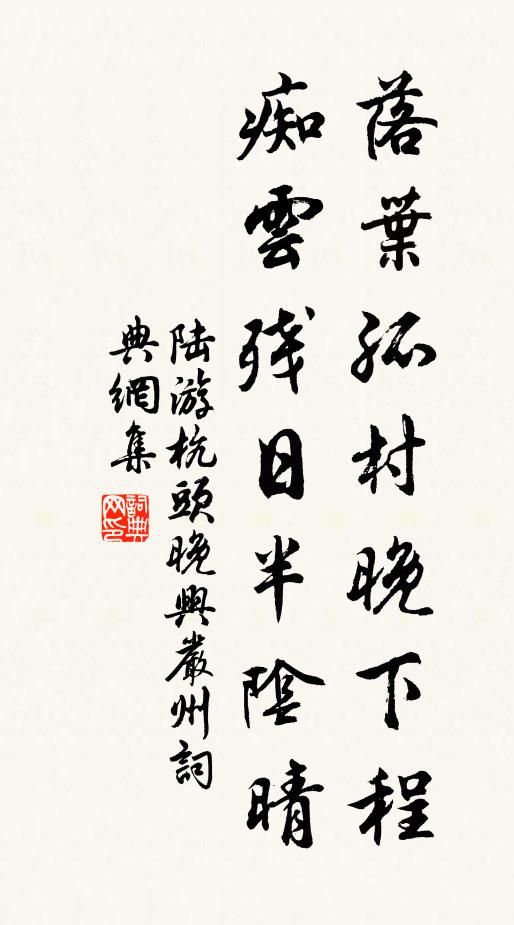 落葉孤村晚下程
痴雲殘日半陰晴
陸游杭頭晚興嚴州詞
典網集
詞典網印